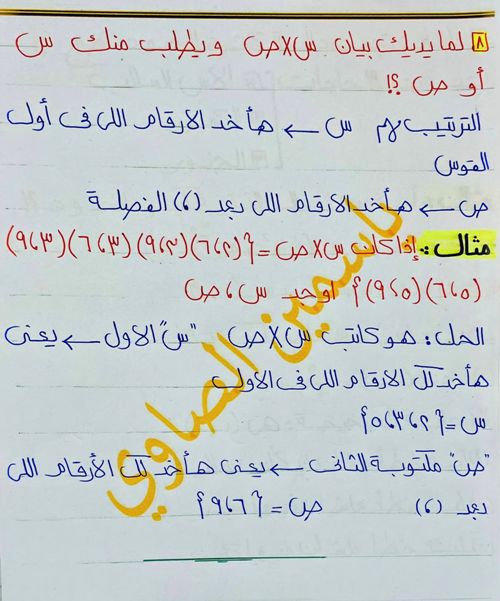 ٨ لما يديك بيان س×ص ويطلب منك س
أو ص ؟!
الترتيب مهم س ← هأخد الارقام اللى فى أول
القوس
ص ← هأخد الارقام اللى بعد (،) الفصلة
مثال: إذا كان س×ص = {(٢،٦)(٢،٩)(٣،٦)(٣،٩)
(٥،٦)(٥،٩)} اوجد س ، ص
الحل: هو كاتب س×ص "س" الاول ← يعنى
هأخد كل الارقام اللى فى الاول
س = {٢،٣،٥}
"ص" مكتوبة الثانى ← يعنى هأخد كل الأرقام اللى
بعد (،) ص = {٦،٩}
ياسمين الصاوي